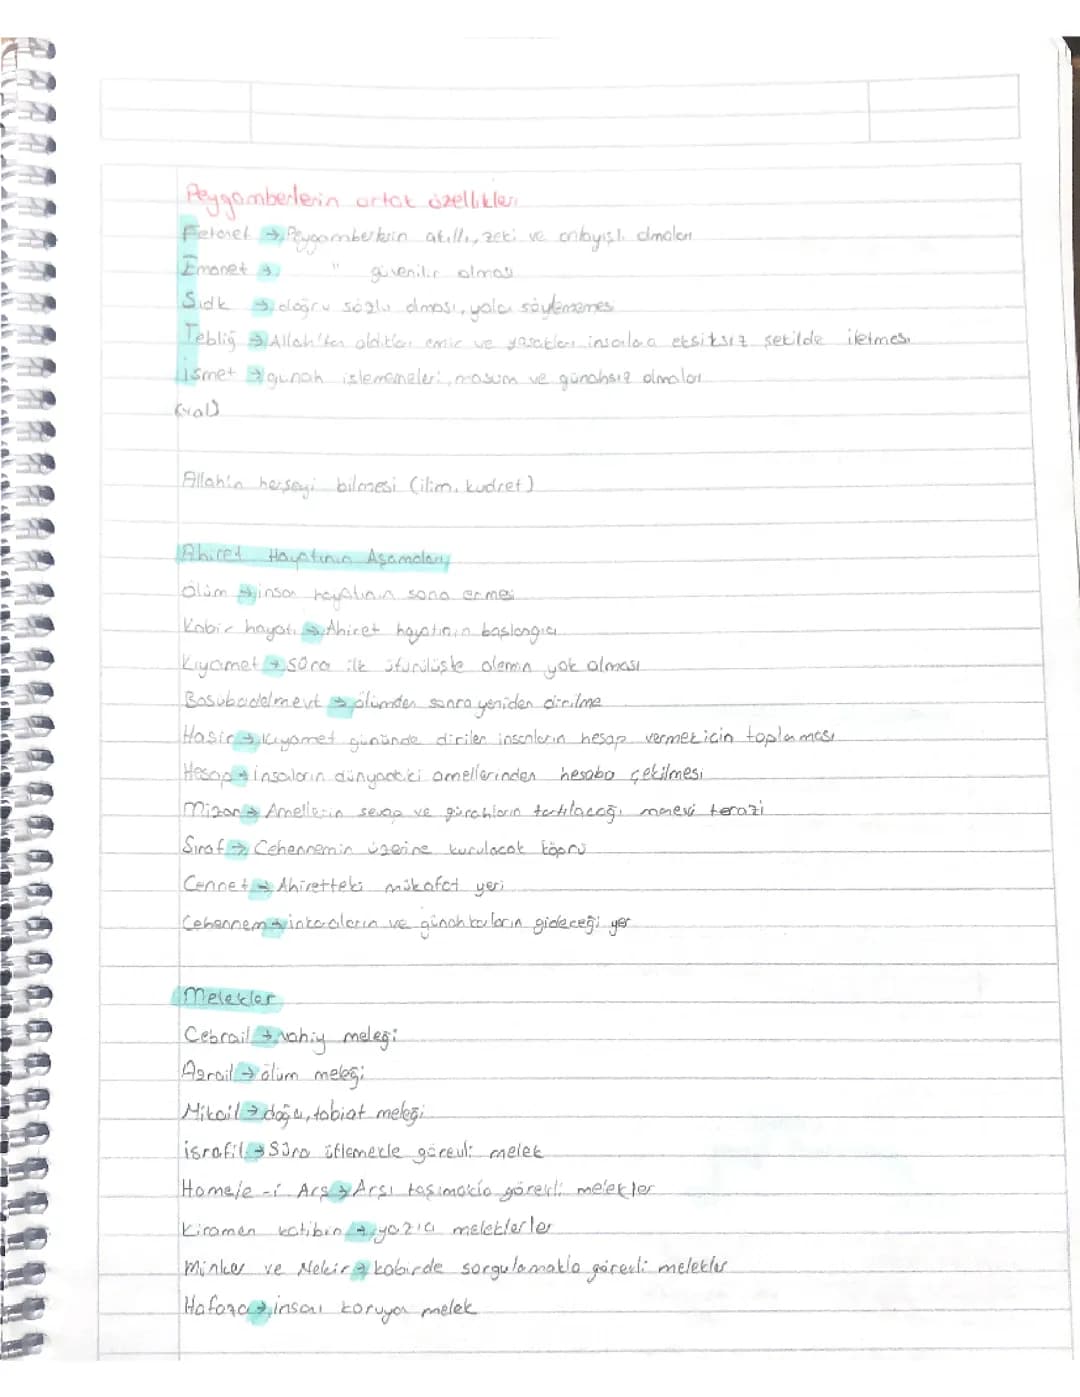 Peygamberlerin ortak özellikleri
Fetanet → Peygamberlerin akıllı, zeki ve anlayışlı olmaları
Emanet → " güvenilir olması
Sıdk → doğru sözlü olması, yalan söylememesi
Tebliğ → Allah'tan aldıkları emir ve yasakları insanlara eksiksiz şekilde iletmesi
İsmet → günah işlememeleri, masum ve günahsız olmaları
Allah'ın herşeyi bilmesi (ilim, kudret)
Ahiret Hayatının Aşamaları
Ölüm → insan hayatının sona ermesi
Kabir hayatı → Ahiret hayatının başlangıcı
Kıyamet → Sûra ilk üfürülüşle alemin yok olması
Basübadelmevt → ölümden sonra yeniden dirilme
Haşir → Kıyamet gününde dirilen insanların hesap vermek için toplanması
Hesap → insanların dünyadaki amellerinden hesaba çekilmesi
Mizan → Amellerin sevap ve günahların tartılacağı manevi terazi
Sırat → Cehennemin üzerine kurulacak köprü
Cennet → Ahiretteki mükafat yeri
Cehennem → inkarcıların ve günahkarların gideceği yer
Melekler
Cebrail → vahiy meleği
Azrail → ölüm meleği
Mikail → doğa, tabiat meleği
İsrafil → Sûra üflemekle görevli melek
Hamele-i Arş → Arşı taşımakla görevli melekler
Kiramen katibin → yazıcı meleklerler
Münker ve Nekir → kabirde sorgulamakla görevli melekler
Hafaza → insanı koruyan melek